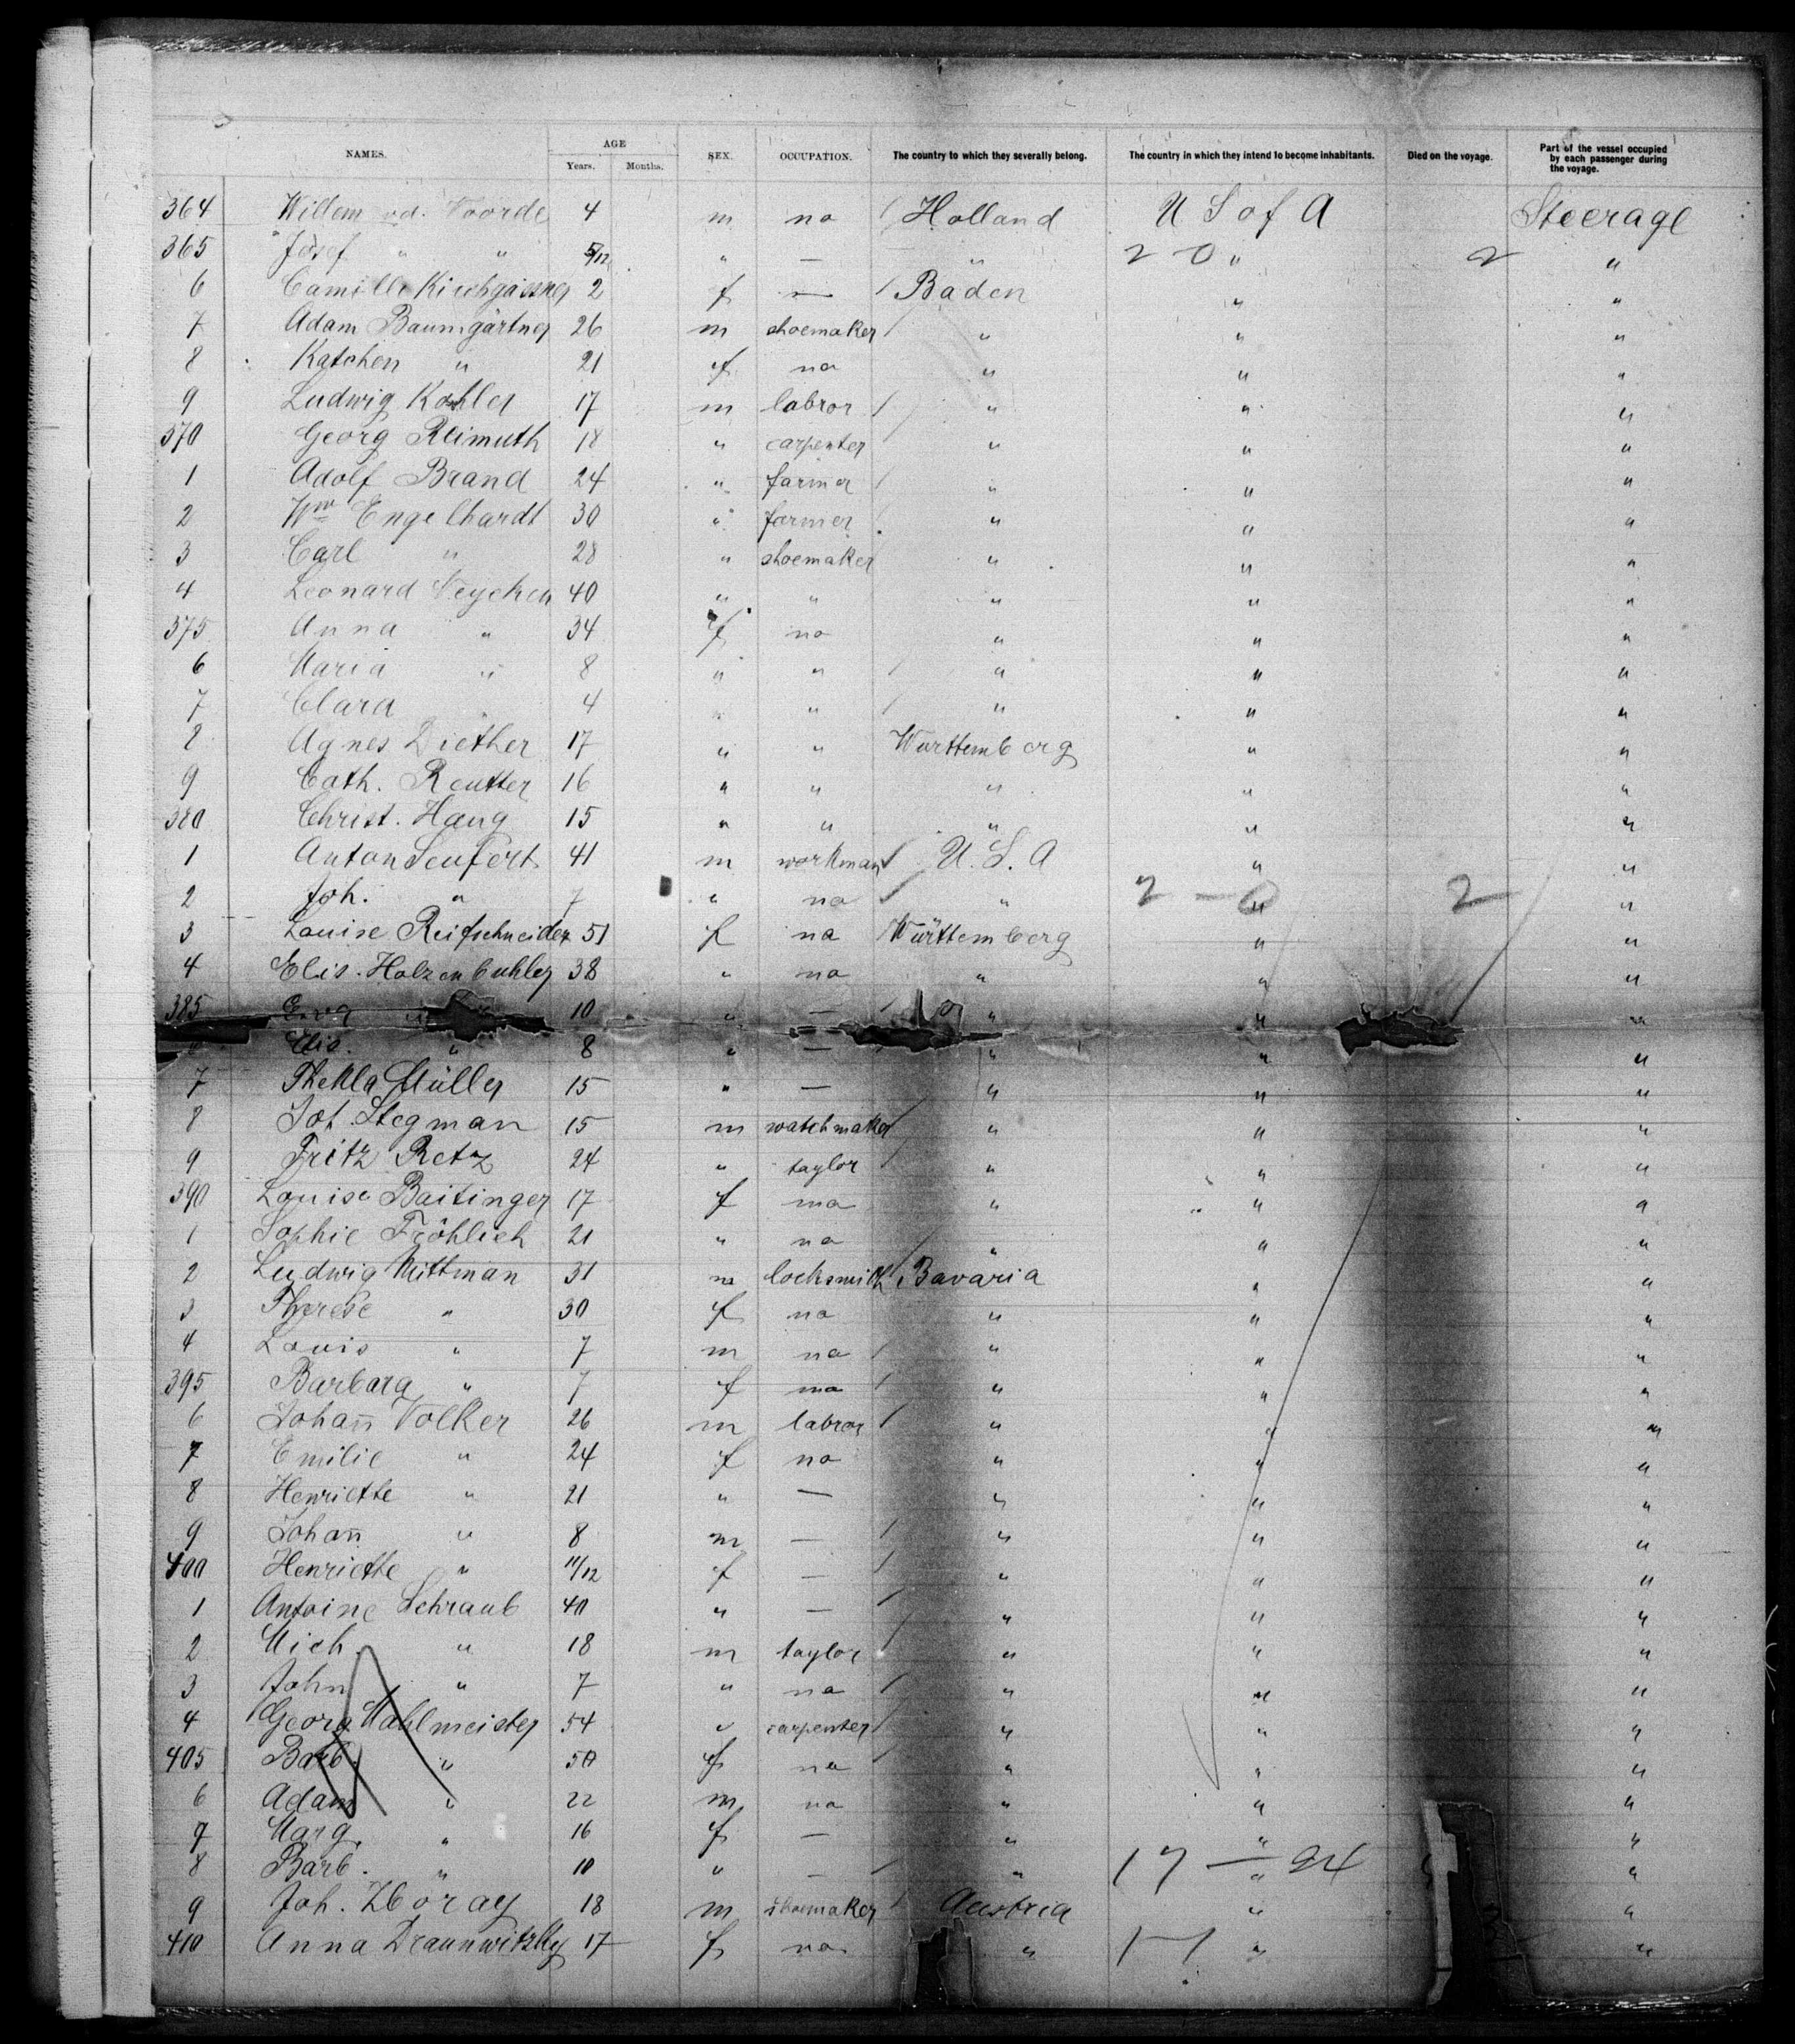 NAMES. AGE Years. Months. SEX. OCCUPATION. The country to which they severally belong. The country in which they intend to become inhabitants. Died on the voyage. Part of the vessel occupied by each passenger during the voyage.
364 Willem vd. Voorde 4 m no Holland U S of A Steerage
365 Josef " " 5/12 " — " 2 0 " 2 "
6 Camille Kirchgässner 2 f — Baden " "
7 Adam Baumgärtner 26 m shoemaker " " "
8 Katchen " 21 f no " " "
9 Ludwig Kohler 17 m labror " " "
370 Georg Reimuth 18 " carpenter " " "
1 Adolf Brand 24 " farmer " " "
2 Wm Engelhardt 30 " farmer " " "
3 Carl " 28 " shoemaker " " "
4 Leonard 40 " " " " "
375 Anna " 34 f no " " "
6 Maria " 8 " " " " "
7 Clara " 4 " " " " "
8 Agnes Diether 17 " " Wurttemberg " "
9 Cath. Reutter 16 " " " " "
380 Christ. Haug 15 " " " " "
1 Anton Seufert 41 m workman U. S. A " "
2 Joh. " 7 " no " 2 — 0 " 2 "
3 Louise Reifschneider 51 f no Württemberg " "
4 Elis. Holzenbuhler 38 " no " " "
385 " 10 " — " " "
6 Elis. " 8 " — " " "
7 Thekla Müller 15 " — " " "
8 Joh. Stegman 15 m watchmaker " " "
9 Fritz Retz 24 " taylor " " "
390 Louise Baitinger 17 f no " " "
1 Sophie Fröhlich 21 " no " " "
2 Ludwig Mittman 31 m locksmith Bavaria " "
3 Therese " 30 f no " " "
4 Louis " 7 m no " " "
395 Barbara " 7 f no " " "
6 Johan̄ Volker 26 m labror " " "
7 Emilie " 24 f no " " "
8 Henriette " 21 " — " " "
9 Johan̄ " 8 m — " " "
400 Henriette " 11/12 f — " " "
1 Antoine Schraub 40 " — " " "
2 Mich. " 18 m taylor " " "
3 John " 7 " no " " "
4 Georg Mahlmeister 54 " carpenter " " "
405 Barb. " 50 f no " " "
6 Adam " 22 m no " " "
7 Marg. " 16 f — " " "
8 Barb. " 10 " — " 17 — 24 " "
9 Joh. Zboray 18 m shoemaker Austria " "
410 Anna 17 f no " 1 - 1 " "